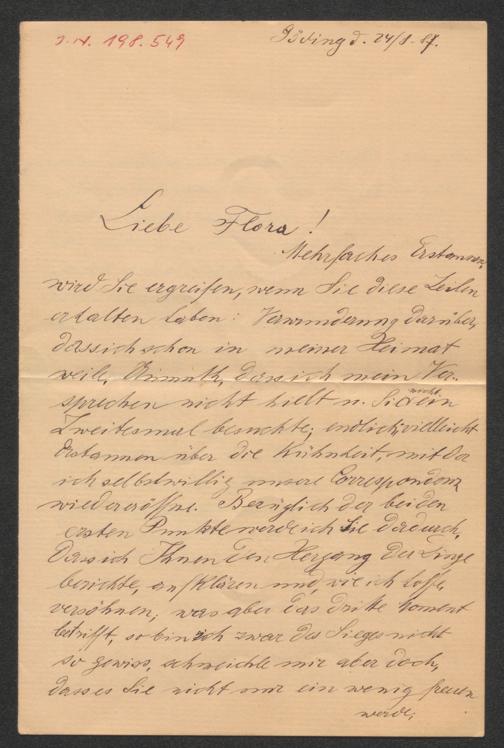 J.N. 198.549
Göding d. 24/8. 87.
Liebe Flora!
Mehrfaches Erstaunen,
wird Sie ergreifen, wenn Sie diese Zeilen
erhalten haben: Verwunderung darüber,
dass ich schon in meiner Heimat
weile, dass ich mein Ver-
sprechen nicht hielt u. Sie nicht ein
Zweitesmal besuchte; endlich vielleicht
Erstaunen über die Kühnheit, mit der
ich selbstwillig unsere Correspondenz
wiedereröffne. Bezüglich der beiden
ersten Punkte werde ich Sie dadurch,
dass ich Ihnen den Hergang der Dinge
berichte, aufklären und, wie ich hoffe,
versöhnen; was aber das dritte Moment
betrifft, so bin ich zwar des Sieges nicht
so gewiss, schmeichle mir aber doch,
dass es Sie nicht nur ein wenig freuen
werde,